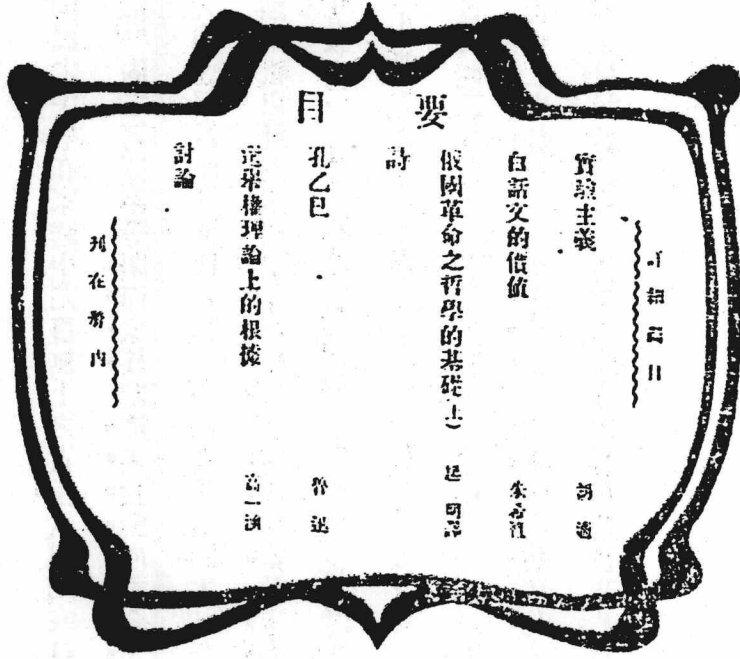 要目
詳細篇目
實驗主義 胡適
白話文的價値 朱希祖
俄國革命之哲學的基礎(上) 起明譯
詩
孔乙己 魯迅
選舉權理論上的根據 高一涵
討論
列在册内